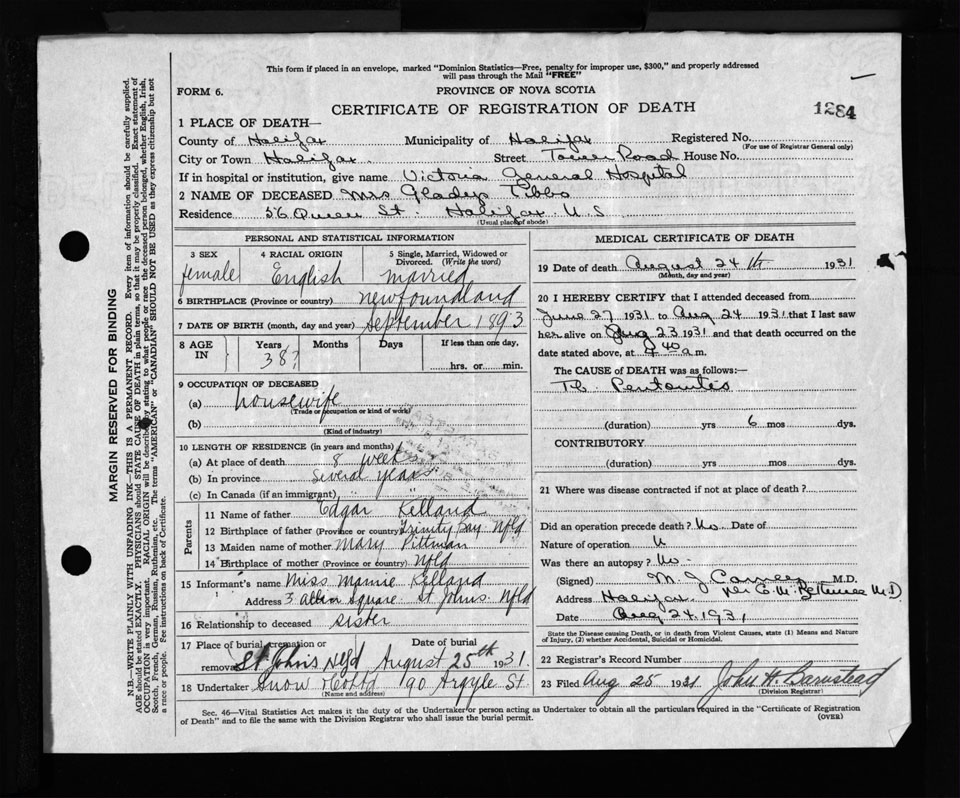 This form if placed in an envelope, marked "Dominion Statistics—Free, penalty for improper use, $300," and properly addressed
will pass through the Mail "FREE"
FORM 6.
PROVINCE OF NOVA SCOTIA
CERTIFICATE OF REGISTRATION OF DEATH
1284
1 PLACE OF DEATH—
County of Halifax Municipality of Halifax Registered No.
(For use of Registrar General only)
City or Town Halifax. Street Tower Road House No.
If in hospital or institution, give name Victoria General Hospital
2 NAME OF DECEASED Mrs Gladys Tibbo
Residence 56 Queen St. Halifax N.S
(Usual place of abode)
PERSONAL AND STATISTICAL INFORMATION
3 SEX
female
4 RACIAL ORIGIN
English
5 Single, Married, Widowed or
Divorced. (Write the word)
married
6 BIRTHPLACE (Province or country) Newfoundland
7 DATE OF BIRTH (month, day and year) September 1893
8 AGE
IN
Years Months Days If less than one day,
38?
hrs. or min.
9 OCCUPATION OF DECEASED
(a) housewife
(Trade or occupation or kind of work)
(b)
(Kind of industry)
10 LENGTH OF RESIDENCE (in years and months)
(a) At place of death 8 weeks
(b) In province Several years
(c) In Canada (if an immigrant)
Parents
11 Name of father Edgar Kelland
12 Birthplace of father (Province or country) Trinity Bay Nfld
13 Maiden name of mother Mary Pittman
14 Birthplace of mother (Province or country) Nfld
15 Informant's name Miss Mamie Kelland
Address 3 Allan Square St Johns Nfld
16 Relationship to deceased sister
17 Place of burial, cremation or Date of burial
removal St John's Nfld August 25th 1931.
18 Undertaker Snow & Co Ltd 90 Argyle St
(Name and address)
MEDICAL CERTIFICATE OF DEATH
19 Date of death August 24th 1931
(Month, day and year)
20 I HEREBY CERTIFY that I attended deceased from
June 27 1931 to Aug 24 1931 that I last saw
her alive on Aug 23 1931 and that death occurred on the
date stated above, at 40 a.m.
The CAUSE of DEATH was as follows:—
Tb Peritonitis
(duration) yrs 6 mos dys.
CONTRIBUTORY
(duration) yrs mos dys.
21 Where was disease contracted if not at place of death?
Did an operation precede death? No Date of
Nature of operation
Was there an autopsy? No.
(Signed) M. J. Carney M.D.
Address Halifax
Date Aug 24, 1931
State the Disease causing Death, or in death from Violent Causes, state (1) Means and Nature
of Injury, (2) whether Accidental, Suicidal or Homicidal.
22 Registrar's Record Number
23 Filed Aug 25 1931 John H. Barnstead
(Division Registrar)
Sec. 46—Vital Statistics Act makes it the duty of the Undertaker or person acting as Undertaker to obtain all the particulars required in the "Certificate of Registration
of Death" and to file the same with the Division Registrar who shall issue the burial permit.
(OVER)
MARGIN RESERVED FOR BINDING
N.B.—WRITE PLAINLY WITH UNFADING INK—THIS IS A PERMANENT RECORD. Every item of information should be carefully supplied.
AGE should be stated EXACTLY. PHYSICIANS should STATE CAUSE OF DEATH in plain terms, so that it may be properly classified. Exact statement of
OCCUPATION is very important. RACIAL ORIGIN will be described by stating to what people or race the deceased person belonged, whether English, Irish,
Scotch, French, German, Russian, Ruthenian, etc. The terms "AMERICAN" or "CANADIAN" SHOULD NOT BE USED as they express citizenship but not
a race or people. See instructions on back of Certificate.